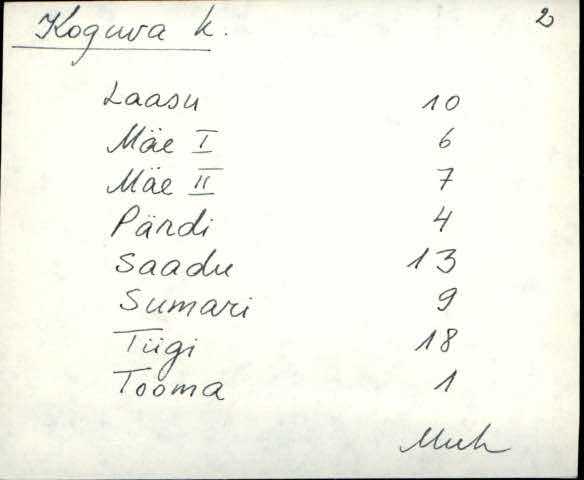 Koguva k. 2
Laasu 10
Mäe I 6
Mäe II 7
Pärdi 4
Saadu 13
Sumari 9
Tiigi 18
Tooma 1
Muh